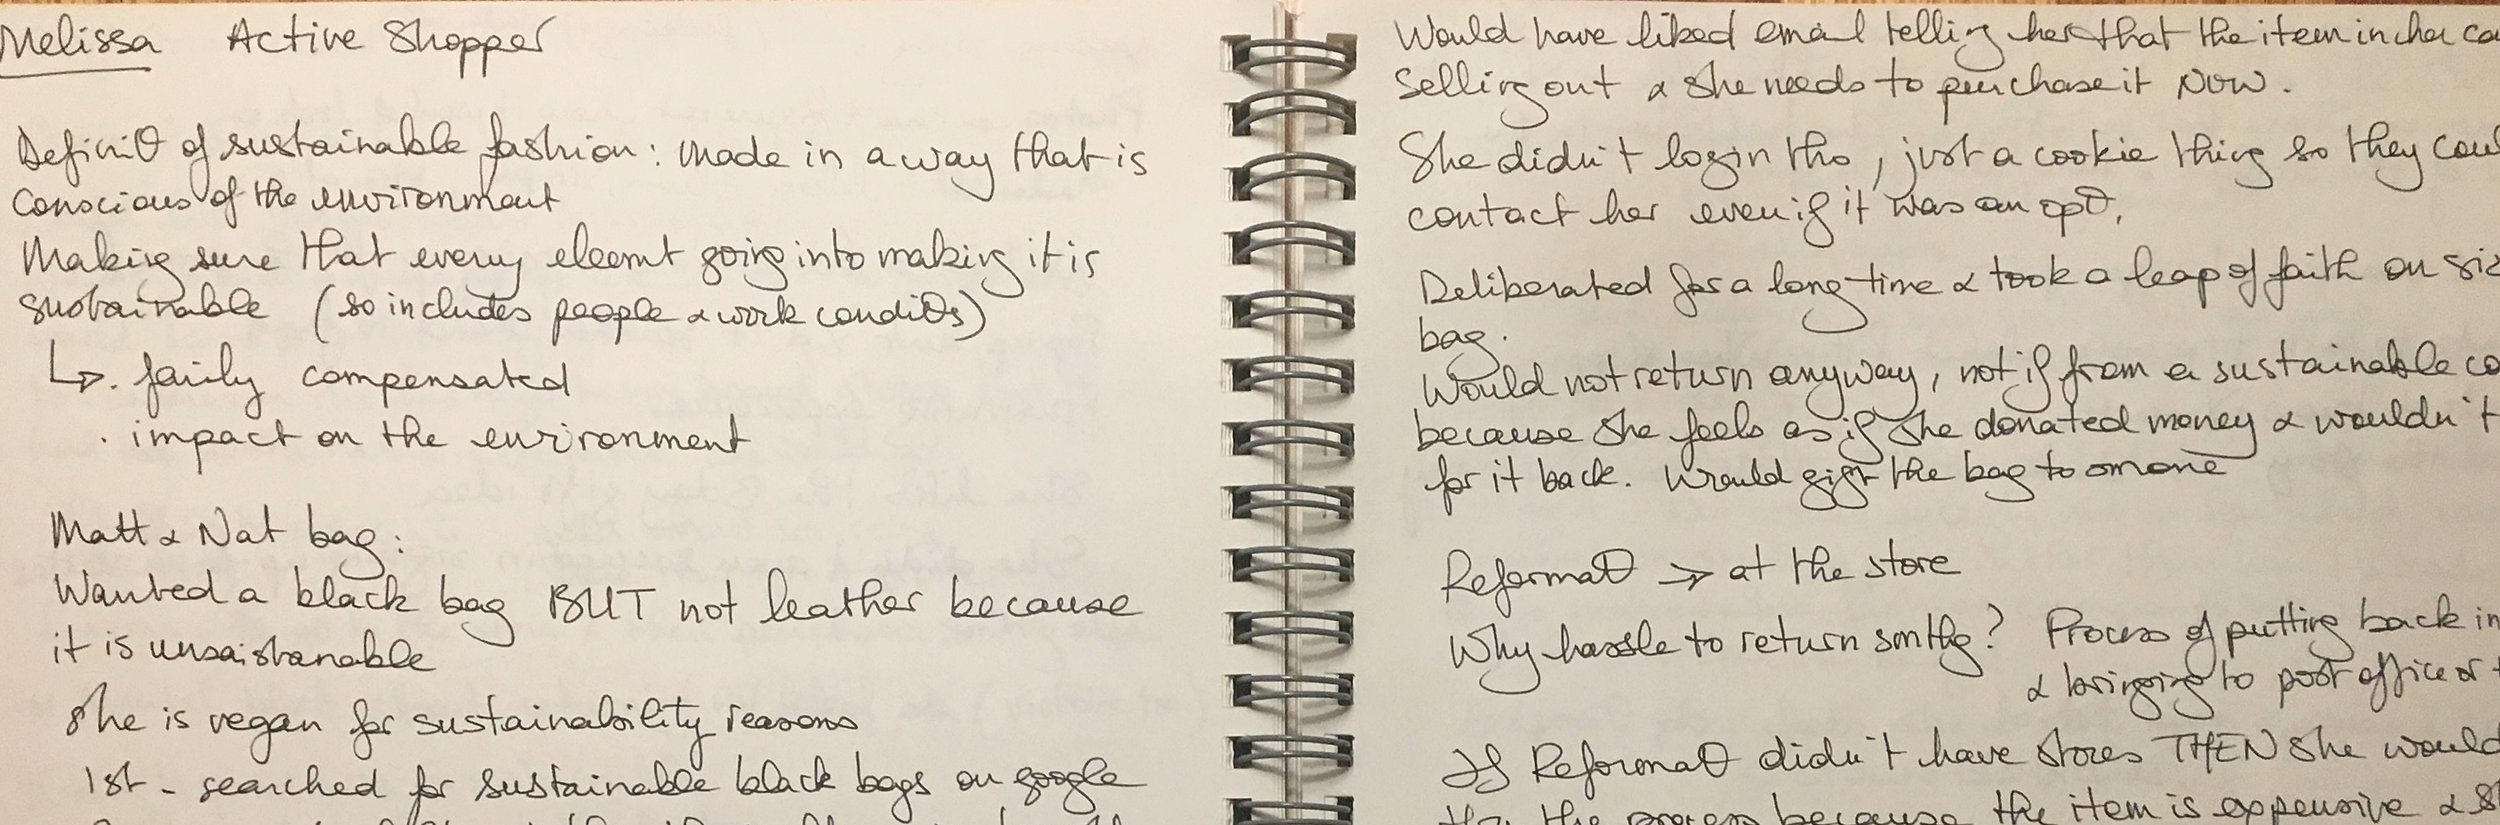 Melissa Active Shopper
Definitθ of sustainable fashion: made in a way that is
conscious of the environment
Making sure that every eleemt going into making it is
sustainable (so includes people & work conditθs)
↳ . fairly compensated
. impact on the environment
Matt & Nat bag:
Wanted a black bag BUT not leather because
it is unsaistanable
She is vegan for sustainability reasons
1st - searched for sustainable black bags on google
Would have liked email telling her that the item in her ca
selling out & she needs to purchase it NOW.
She didn't login tho, just a cookie thing so they coul
contact her even if it was an optθ.
Deliberated for a long time & took a leap of faith on siz
bag.
Would not return anyway, not if from a sustainable co
because she feels as if she donated money & wouldn't
for it back. Would gift the bag to omone
Reformatθ → at the store
Why hassle to return smthg? Process of putting back in
& bringing to post office or t
If Reformatθ didn't have stores THEN she would
the process because the item is expensive &